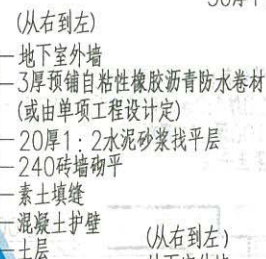 (从右到左)
地下室外墙
3厚预铺自粘性橡胶沥青防水卷材
(或由单项工程设计定)
20厚1：2水泥砂浆找平层
240砖墙砌平
素土填缝
混凝土护壁
土层
(从右到左)